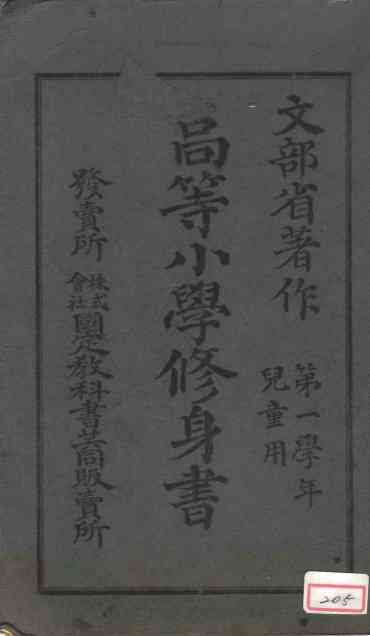 文部省著作
第一學年
兒童用
高等小學修身書
發賣所
株式
會社
國定教科書共同販賣所
205